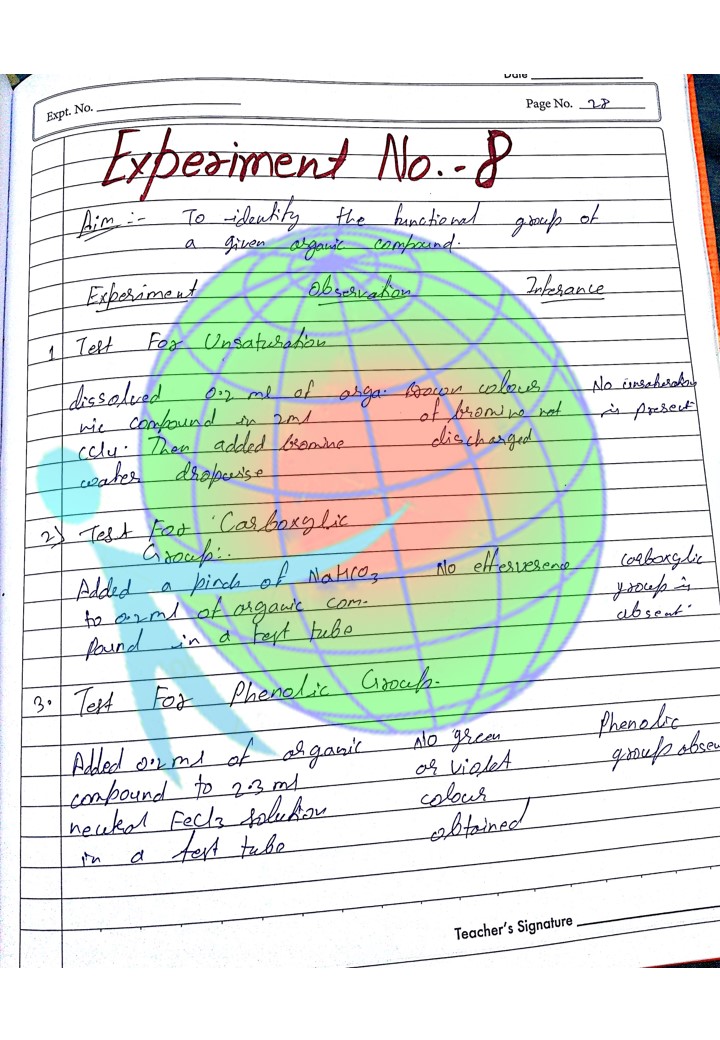 Date
Expt. No.
Page No. 28
Experiment No.-8
Aim :- To identify the functional group of
a given organic compound.
Experiment Observation Inferance
1 Test For Unsaturation
dissolved 0.2 ml of orga- Brown colour No unsaturation
nic compound in 2ml of bromine not is present
CCl4. Then added bromine discharged
water dropwise
2) Test For Carboxylic
Group:-
Added a pinch of NaHCO3 No effervesence carboxylic
to 0.2ml of organic com- group is
pound in a test tube absent.
3. Test For Phenolic Group.
Added 0.2ml of organic No green Phenolic
compound to 2.3 ml or violet group absen
neutral FeCl3 solution colour
in a test tube obtained
Teacher's Signature